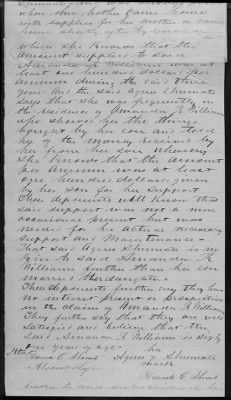 when their Mother came home
with supplies for her Mother or came
home shortly after by wagon
which She knows that the
amount supplied to said
Amanda R Williams was at
least one hundred dollars per
annum during the said three
years And the said Agnes Shumate
Says that She was frequently in
the residence of Amanda R Williams
who showed her the things
bought by her son and told
her of the Money received by
her from her son whereby
She knows that the amount
per Annum was at least
one hundred dollars given
by her son for her Support
These deponents well Know that
said support was not a mere
occasional present but was
needed for his actual necessary
support and Maintenance
That said Agnes Shumate is no
kin to said Amanda R
Williams further than her son
married her daughter
These deponents further say they have
no interest present or prospective
in the claim of Amanda R Williams
They further say that they are well
Satisfied and believe that the
said Amanda R Williams is sixty
one years of age
Attest
her
Agnes J Shumate
mark
Hannah C